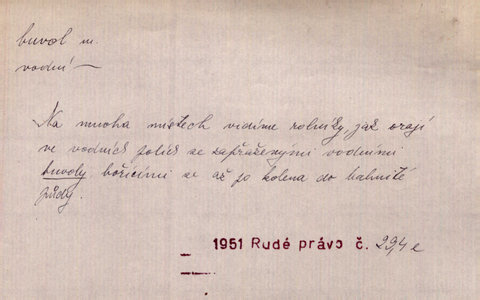 buvol m.
vodní —
Na mnoha místech vidíme rolníky, jak orají
ve vodních polích se zapřaženými vodními
buvoly, bořícími se až po kolena do bahnité
půdy.
1951 Rudé právo č. 294 e